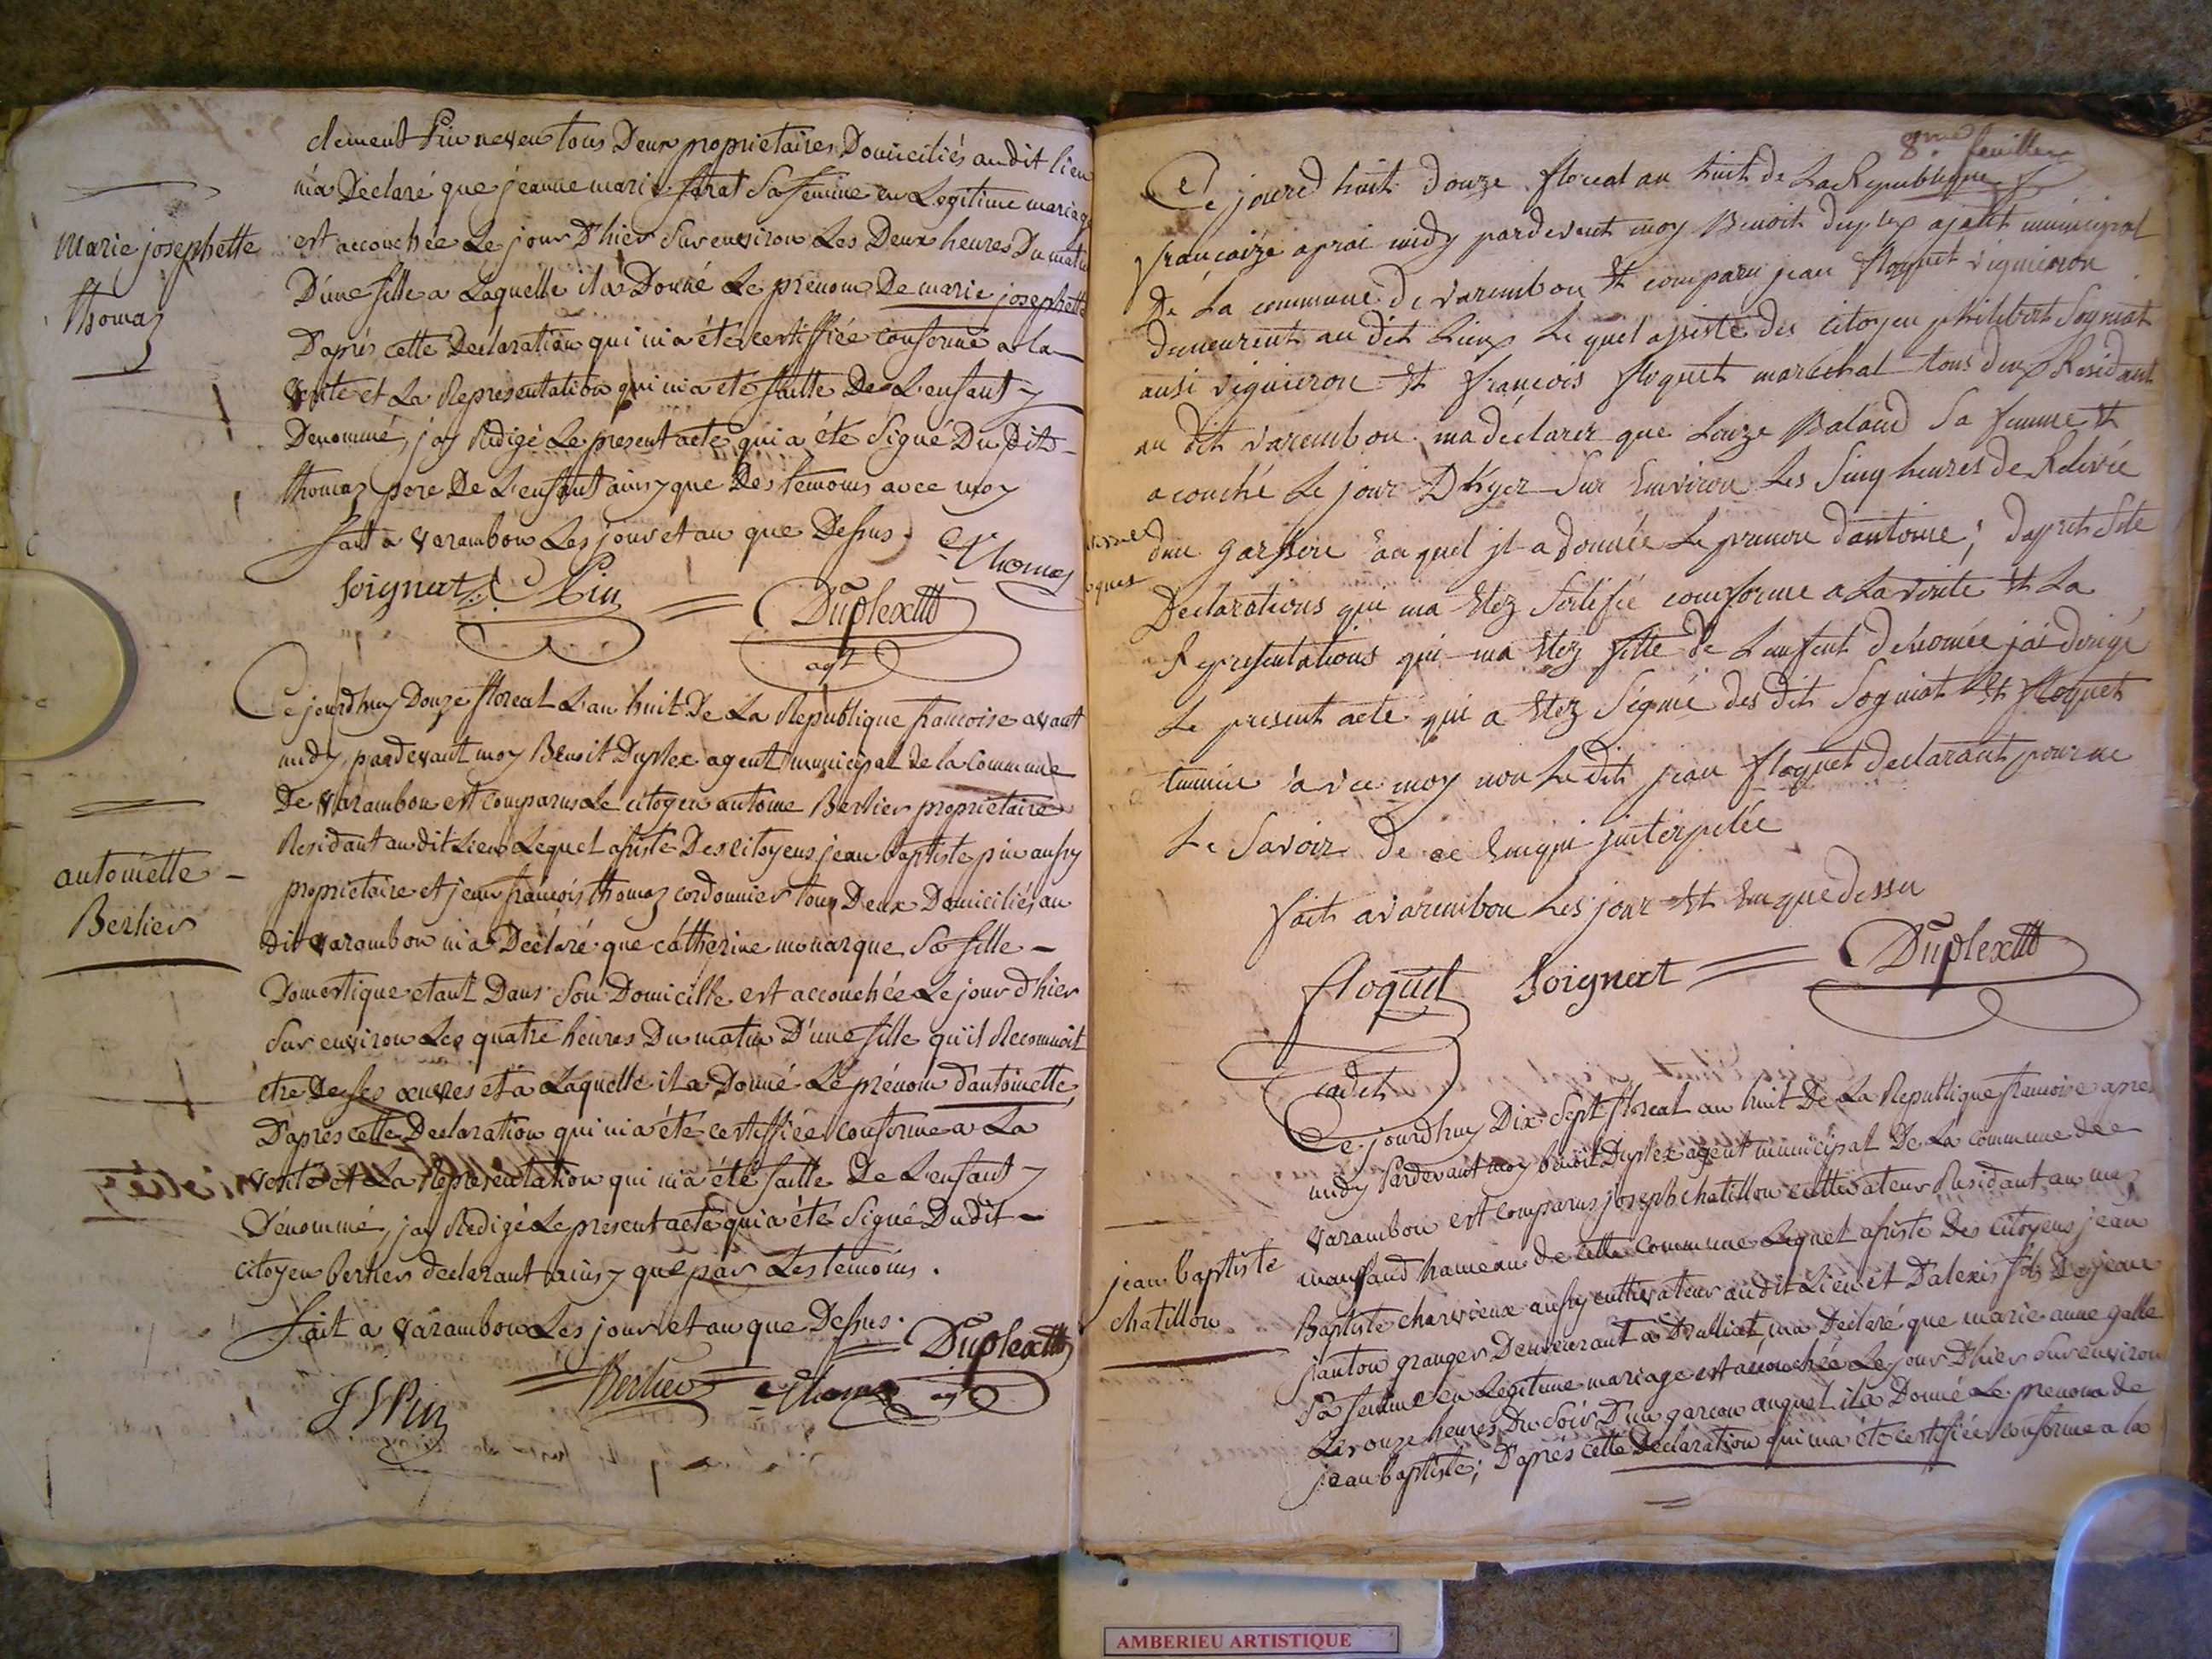 clement Pin neveu tous Deux proprietaires Domiciliés audit lieu
m'a Déclaré que jeanne marie ferat Sa femme en Legitime mariage
marie josephette
thomaz
est accouchée Le jour D'hier Sur environ Les Deux heures Du matin
D'une fille a Laquelle il a Donné Le prénom De marie josephette
D'aprés cette Declaration qui m'a été certiffiée conforme a la
verité et La Representation qui m'a été faitte De L'enfant
Denommé, j'ay Redigé Le present acte qui a été Signé Dudit
thomaz pere De L'enfant ainsy que Des temoins avec moy
fait a varambon Les jour et an que Dessus.
Thomaz
Soignat Pin Duplex
agt
Ce jourd'huy Douze floreal L'an huit De La Republique francoise avant
midy, pardevant moy Benoit Duplex agent municipal de la Commune
De varambon est comparus Le citoyen antoine Berlier proprietaire
Residant audit Lieu Lequel assisté Des citoyens jean baptiste pin aussy
antoinette
Berlier
proprietaire et jean francois thomaz cordonnier tous Deux Domiciliés au
dit varambon m'a Déclaré que catherine monarque Sa fille
Domestique etant Dans Son Domicille est accouchée Le jour d'hier
Sur environ Les quatre heures Du matin D'une fille qu'il Reconnoit
etre De Ses œuvres et a Laquelle il a Donné Le prénom d'antoinette,
D'apres cette Declaration qui m'a été certiffiée conforme a La
verité et La Representation qui m'a été faitte De L'enfant
Dénommé, j'ay Redigé Le present acte qui a été Signé Dudit
citoyen berlier declarant ainsy que par Les temoins.
fait a varambon Les jour et an que Dessus.
Duplex
J B Pin Berlier Thomaz agt
8me feuille
Ce jourd huit douze floreal an huit de La Republique
francaize aprai midy pardevent moy Benoit duplex ajant municipal
De La commune de varembon Et comparu jean floquet vigneron
demeurent au dit Lieux Le quel asisté des citoyen philibert Sogniat
ausi vignieron Et francois floquet maréchal tous deux Residant
au dit varembon ma déclarer que Louize Baland Sa femme Et
acouché Le jour D hyer Sur Environ Les Sinq heures de Relevée
dun garsson auquel jl a donnée Le prenon dantoine; dapret Sete
Declarations qui ma Etez Sertifié comforme a La vérité Et La
Representations qui ma Etez fette de Lenfent denomée jai dirigé
Le present acte qui a Etez Signié des dit Sogniat Et floquet
temoin avec moy non Le dit jean floquet declarant pour ne
Le Savoir de ce Enqui jnterpelée
fait a varembon Les jour Et Enque dessu
floquet Soignat Duplex
cadet
Ce jourd'huy Dix Sept floreal an huit De La Republique francoise apres
midy Pardevant moy benoit Duplex agent municipal De La commune De
varambon est comparus joseph chatillon cultivateur Residant au
jean baptiste
chatillon
hameau de cette commune Lequel assisté Des citoyens jean
Baptiste charvieux aussy cultivateur audit Lieu et D'alexis fils De jean
granger Demeurant a Druillat, m'a Déclaré que marie anne galle
Sa femme en Legitime mariage est accouchée Le jour D'hier Sur environ
Les onze heures Du Soir D'un garcon auquel il a Donné Le prenom de
jean baptiste; D'aprés cette Declaration qui m'a été certifiée conforme a la
AMBERIEU ARTISTIQUE